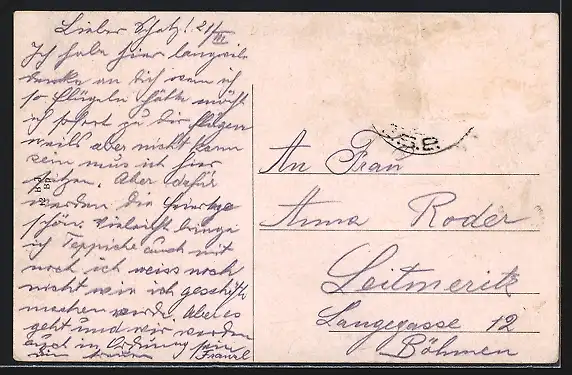 Lieber Schatz! 21/III
Ich habe hier langweile
denke an dich wenn ich
so flügeln hätte möcht
ich sofort zu dir flügen
weils aber nicht kann
sein mus ich hier
sitzen. Aber dafür
werden die feiertage
schön. Vieleicht bringe
ich Teppiche auch mit
noch ich weiss noch
nicht wie ich geschäft
machen werde. Aber es
geht und wir werden
auch in Ordnung sein
dein treuer Franzl
An Frau
Anna Roder
Leitmeritz
Langegasse 12
Böhmen